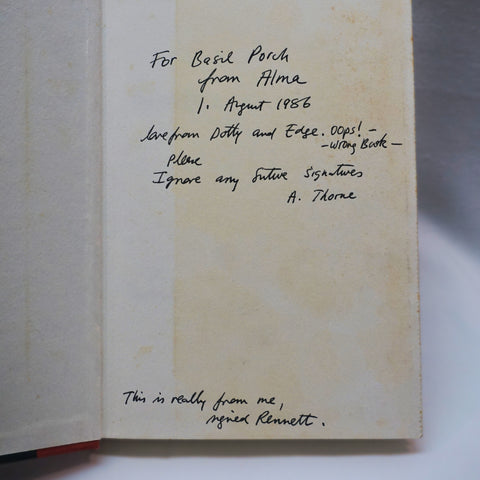 For Basil Porch
from Alma
1. August 1986
love from Dotty and Edge. Oops! –
– Wrong Book –
Please
Ignore any future Signatures
A. Thorne
This is really from me,
signed Rennett.